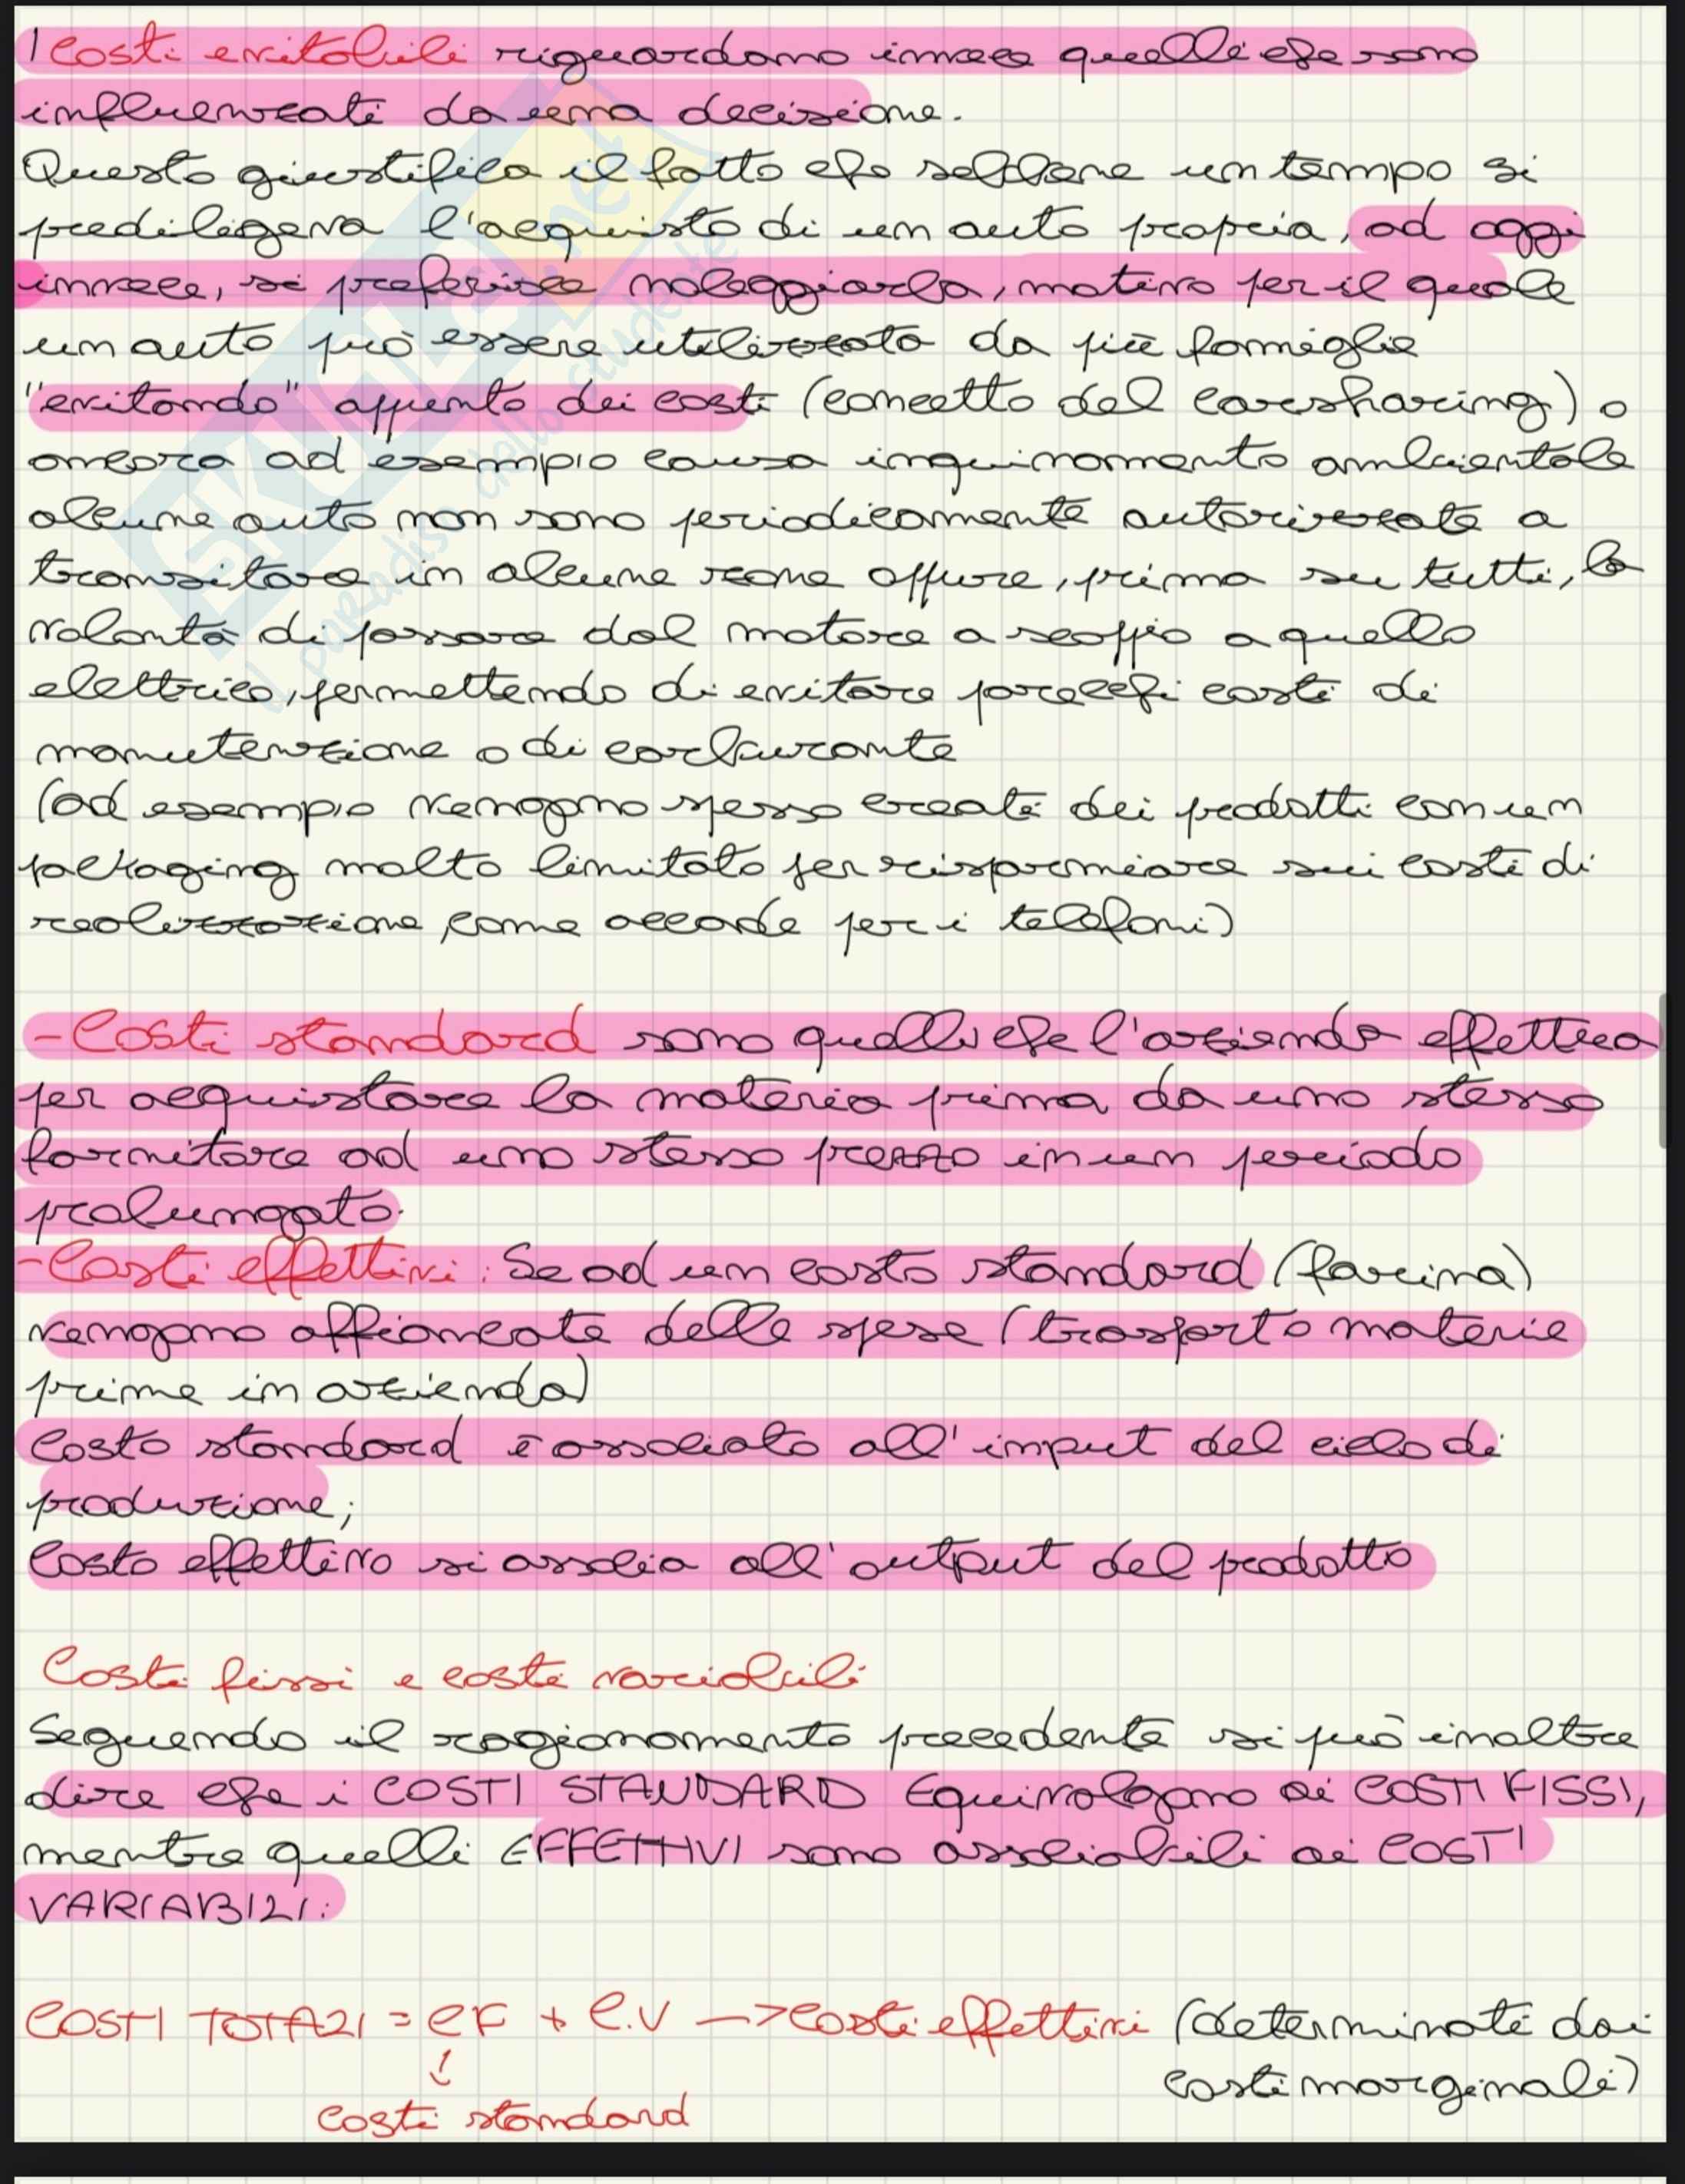 I costi evitabili riguardano invece quelli che sono
influenzati da una decisione.
Questo giustifica il fatto che sebbene un tempo si
prediligeva l'acquisto di un auto propria, ad oggi
invece, si preferisce noleggiarla, motivo per il quale
un auto può essere utilizzata da più famiglie
"evitando" appunto dei costi (concetto del carsharing) o
ancora ad esempio causa inquinamento ambientale
alcune auto non sono periodicamente autorizzate a
transitare in alcune zone oppure, prima su tutti, la
volontà di passare dal motore a scoppio a quello
elettrico, permettendo di evitare parecchi costi di
manutenzione o di carburante
(ad esempio vengono spesso creati dei prodotti con un
packaging molto limitato per risparmiare sui costi di
realizzazione, come accade per i telefoni)
- Costi standard sono quelli che l'azienda effettua
per acquistare la materia prima da uno stesso
fornitore ad uno stesso prezzo in un periodo
prolungato.
- Costi effettivi: Se ad un costo standard (farina)
vengono affiancate delle spese (trasporto materie
prime in azienda)
Costo standard è associato all'imput del ciclo di
produzione;
Costo effettivo si associa all'output del prodotto
Costi fissi e costi variabili
Seguendo il ragionamento precedente si può inoltre
dire che i COSTI STANDARD Equivalgano ai COSTI FISSI,
mentre quelli EFFETTIVI sono associabili ai COSTI
VARIABILI:
COSTI TOTALI = CF + C.V -> Costi effettivi (determinati dai
costi marginali)
↓
Costi standard
SKUOLA.net
il paradiso dello studente